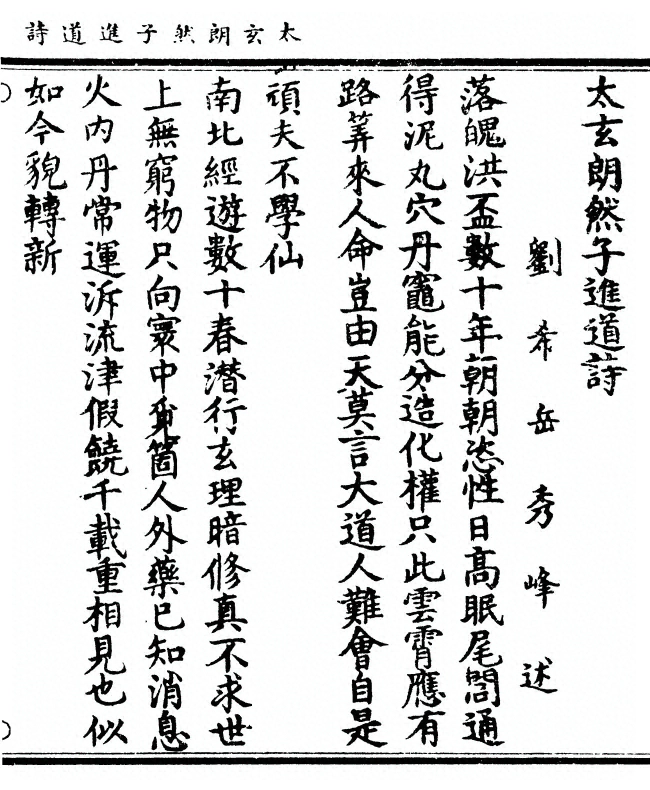 太玄朗然子進道詩
太玄朗然子進道詩
劉希岳秀峰述
落魄洪盃數十年朝朝恣性日高眠尾閭通
得泥丸穴丹竈能分造化權只此雲霄應有
路筭來人命豈由天莫言大道人難會自是
頑夫不學仙
南北經遊數十春潜行玄理暗修真不求世
上無窮物只向寰中身箇人外藥已知消息
火內丹常運泝流津假饒千載重相見也似
如今貌轉新